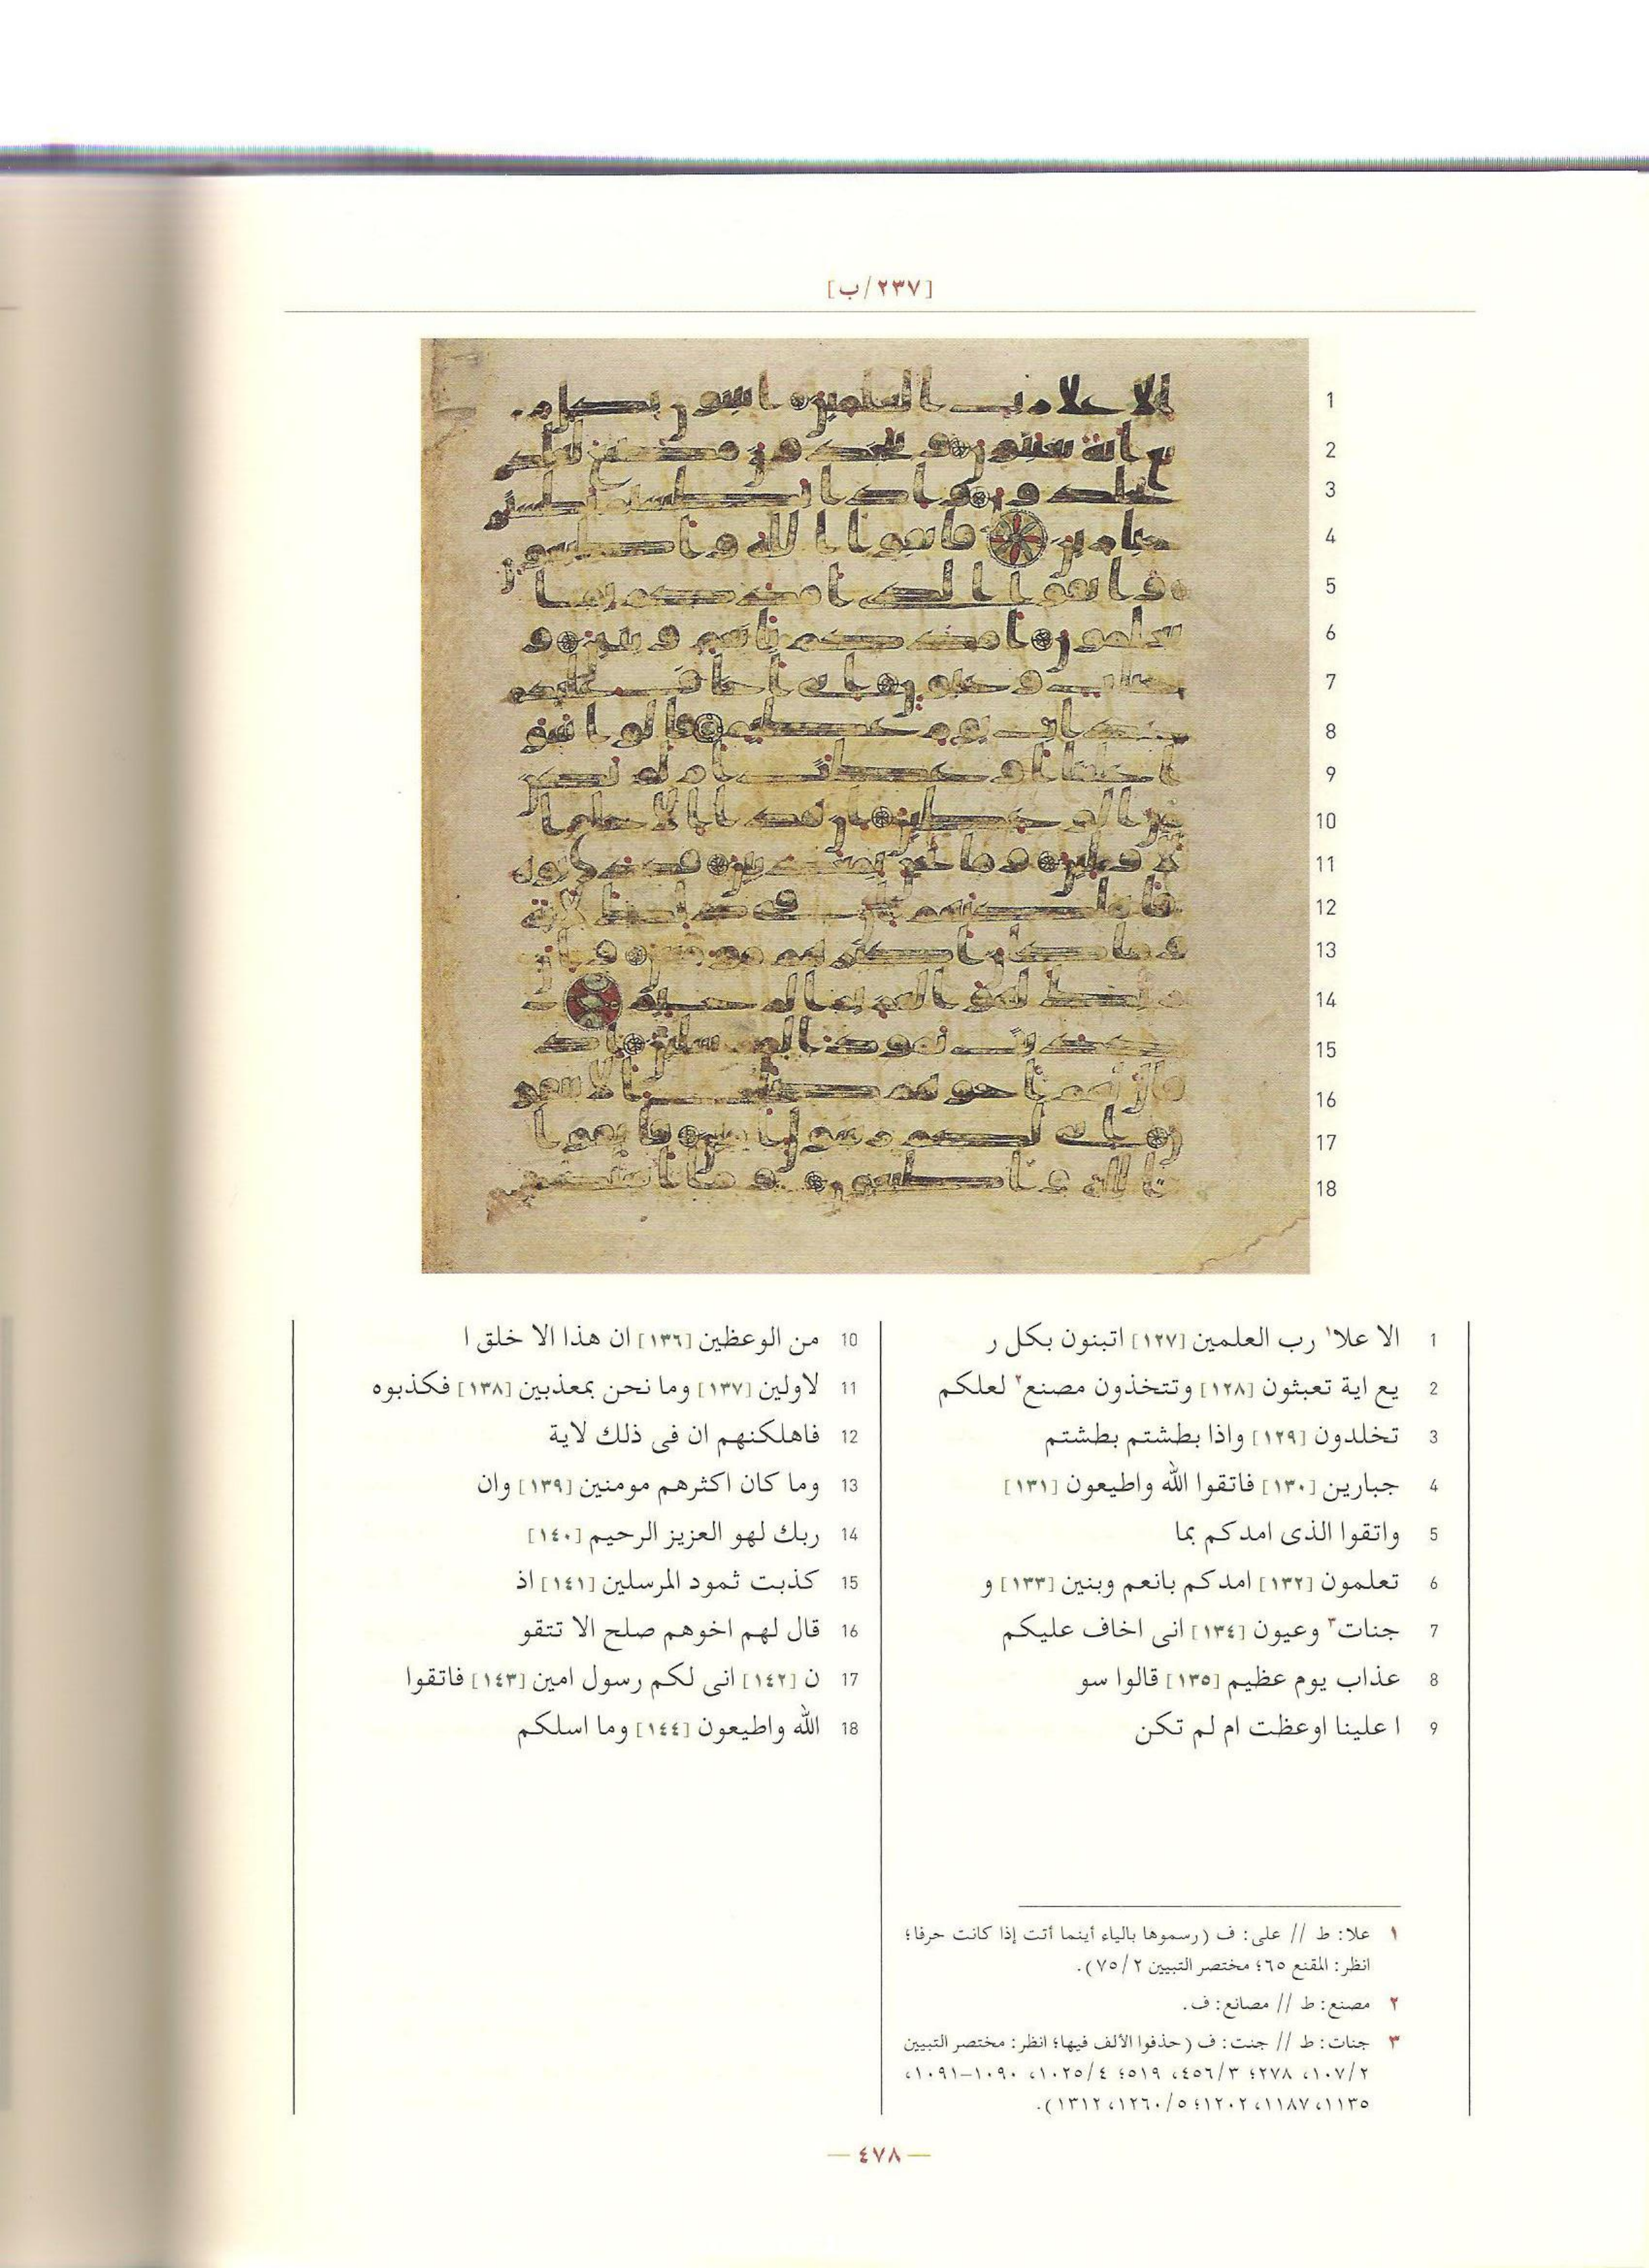 [٢٣٧/ب]
1 الا علا١ رب العلمين [١٢٧] اتبنون بكل ر
2 يع اية تعبثون [١٢٨] وتتخذون مصنع٢ لعلكم
3 تخلدون [١٢٩] واذا بطشتم بطشتم
4 جبارين [١٣٠] فاتقوا الله واطيعون [١٣١]
5 واتقوا الذى امدكم بما
6 تعلمون [١٣٢] امدكم بانعم وبنين [١٣٣] و
7 جنات٣ وعيون [١٣٤] انى اخاف عليكم
8 عذاب يوم عظيم [١٣٥] قالوا سو
9 ا علينا اوعظت ام لم تكن
10 من الوعظين [١٣٦] ان هذا الا خلق ا
11 لاولين [١٣٧] وما نحن بمعذبين [١٣٨] فكذبوه
12 فاهلكنهم ان فى ذلك لاية
13 وما كان اكثرهم مومنين [١٣٩] وان
14 ربك لهو العزيز الرحيم [١٤٠]
15 كذبت ثمود المرسلين [١٤١] اذ
16 قال لهم اخوهم صلح الا تتقو
17 ن [١٤٢] انى لكم رسول امين [١٤٣] فاتقوا
18 الله واطيعون [١٤٤] وما اسلكم
١ علا: ط // على: ف (رسموها بالياء أينما أتت إذا كانت حرفا؛
انظر: المقنع ٦٥؛ مختصر التبيين ٧٥/٢).
٢ مصنع: ط // مصانع: ف.
٣ جنات: ط // جنت: ف (حذفوا الألف فيها؛ انظر: مختصر التبيين
١٠٧/٢، ٢٧٨؛ ٤٥٦/٣، ٥١٩؛ ١٠٢٥/٤، ١٠٩٠–١٠٩١،
١١٣٥، ١١٨٧، ١٢٠٢؛ ١٢٦٠/٥، ١٣١٢).
— ٤٧٨ —